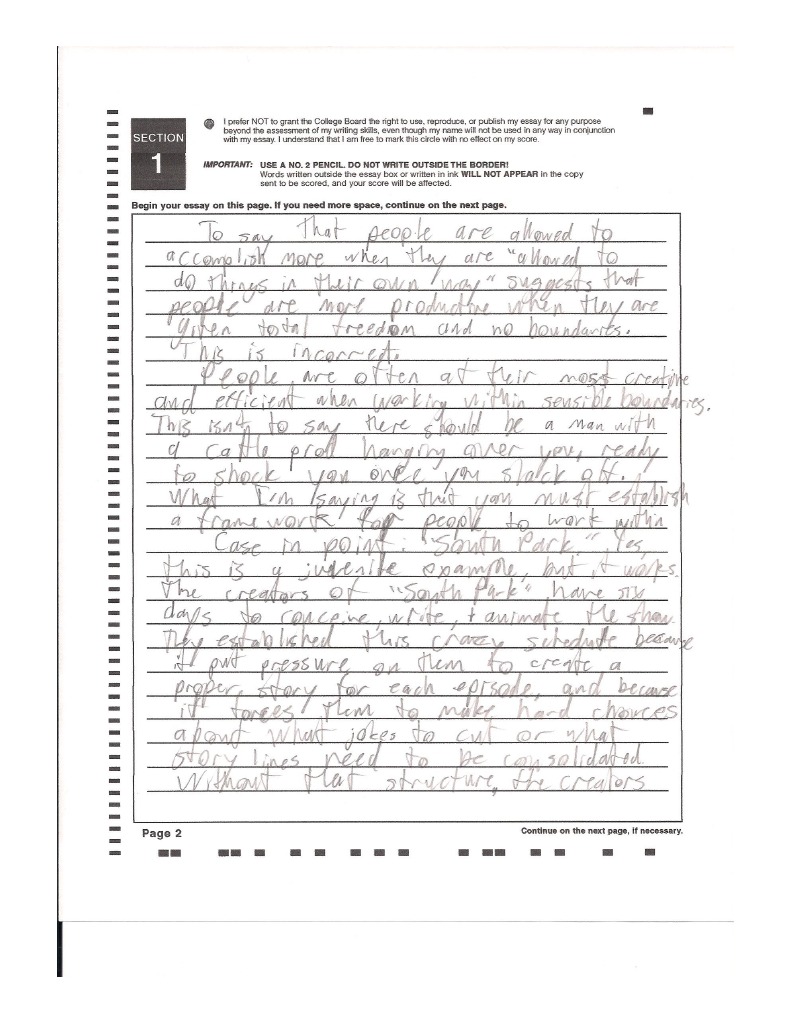 SECTION
1
I prefer NOT to grant the College Board the right to use, reproduce, or publish my essay for any purpose
beyond the assessment of my writing skills, even though my name will not be used in any way in conjunction
with my essay. I understand that I am free to mark this circle with no effect on my score.
IMPORTANT: USE A NO. 2 PENCIL. DO NOT WRITE OUTSIDE THE BORDER!
Words written outside the essay box or written in ink WILL NOT APPEAR in the copy
sent to be scored, and your score will be affected.
Begin your essay on this page. If you need more space, continue on the next page.
To say that people are allowed to
accomplish more when they are "allowed to
do things in their own way" suggests that
people are more productive when they are
given total freedom and no boundaries.
This is incorrect.
People are often at their most creative
and efficient when working within sensible boundaries.
This isn't to say there should be a man with
a cattle prod hanging over you, ready
to shock you once you slack off.
What I'm saying is that you must establish
a framework for people to work within
Case in point: "South Park." Yes,
this is a juvenile example, but it works.
The creators of "South Park" have six
days to conceive, write, + animate the show.
They established this crazy schedule because
it put pressure on them to create a
proper story for each episode, and because
it forces them to make hard choices
about what jokes to cut or what
story lines need to be consolidated.
Without that structure, the creators
Page 2
Continue on the next page, if necessary.